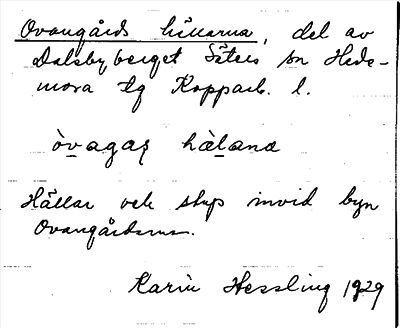 Ovangårds hällarna, del av
Dalsbyberget Säters sn Hede-
mora tg Kopparb. l.
òvagaṣ hàlana
Hällar och stup invid byn
Ovangårdarna.
Karin Hessling 1929